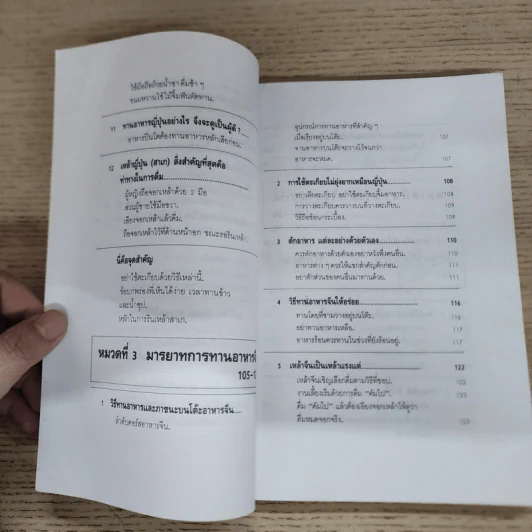 ใช้มือถือถ้วยน้ำชา ดื่มช้า ๆ
ขนมหวานใช้ไม้จิ้มฟันตัดทาน.
11 ทานอาหารญี่ปุ่นอย่างไร จึงจะดูเป็นผู้ดี ?
อาหารปิ่นโตต้องทานอาหารหลักเสียก่อน.
12 เหล้าญี่ปุ่น (สาเก) สิ่งสำคัญที่สุดคือ
ท่าทางในการดื่ม
ผู้หญิงถือจอกเหล้าด้วย 2 มือ
ส่วนผู้ชายใช้มือขวา.
เอียงจอกเหล้าแล้วดื่ม.
ถือจอกเหล้าไว้ที่ด้านหน้าอก ขณะรอรินเหล้า.
นี่คือจุดสำคัญ
อย่าใช้ตะเกียบด้วยวิธีเหล่านี้.
ข้อบกพร่องที่เห็นได้ง่าย เวลาทานข้าว
และน้ำซุป.
หลักในการรินเหล้าสาเก.
หมวดที่ 3 มารยาทการทานอาหาร
105-
1 วิธีทานอาหารและภาชนะบนโต๊ะอาหารจีน....
ลำดับคอร์สอาหารจีน.
อุปกรณ์การทานอาหารที่สำคัญ ๆ
เมื่อเรียงอยู่บนโต๊ะ. 107
จานอาหารบนโต๊ะจะวางไว้จนกว่า
อาหารจะหมด. 107
2 การใช้ตะเกียบไม่ยุ่งยากเหมือนญี่ปุ่น........... 108
อย่าเลียตะเกียบ อย่าใช้ตะเกียบจิ้มอาหาร. 108
การวางตะเกียบควรวางบนที่วางตะเกียบ. 109
วิธีถือช้อนกระเบื้อง. 109
3 ตักอาหาร แต่ละอย่างด้วยตัวเอง.............. 110
ควรตักอาหารด้วยตัวเองอย่าหวังพึ่งคนอื่น. 110
อาหารต่าง ๆ ควรให้แขกสำคัญตักก่อน. 111
อย่าตักส่วนของคนอื่นมาทานด้วย. 111
4 วิธีทานอาหารจีนให้อร่อย.................... 116
ทานโดยที่ชามวางอยู่บนโต๊ะ. 116
อย่าทานอาหารเหลือ. 117
อาหารร้อนควรทานในช่วงที่ยังร้อนอยู่. 117
5 เหล้าจีนเป็นเหล้าแรงแต่..................... 123
เหล้าจีนเชิญเลือกดื่มตามวิธีที่ชอบ. 123
งานเลี้ยงเริ่มด้วยการดื่ม “คัมไป”.
ดื่ม “คัมไป” แล้วต้องเอียงจอกเหล้าให้ดูว่า
ดื่มหมดจอกจริง.